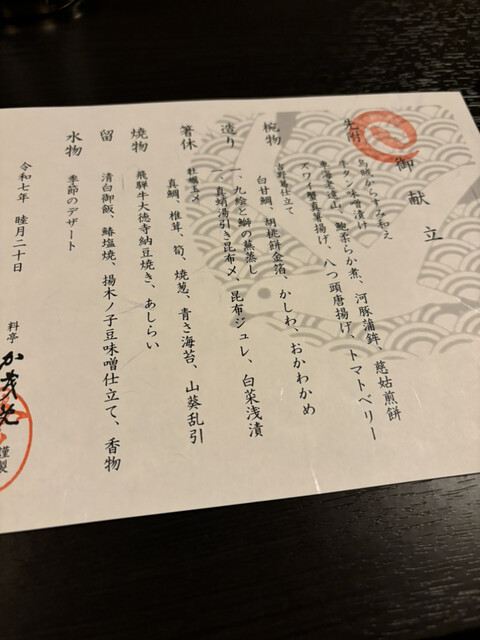 御献立
先付
烏賊からすみ和え
牛タン味噌漬け
東海老遠山、鮑柔らか煮、河豚蒲鉾、慈姑煎餅
ズワイ蟹真薯揚げ、八つ頭唐揚げ、トマトベリー
椀物
吉野葛仕立て
白甘鯛、胡桃餅金箔、かしわ、おかわかめ
造り
一、九絵と鰤の藁蒸し
一、真蛸湯引き昆布〆、昆布ジュレ、白菜浅漬
箸休
牡蠣玉〆
真鯛、椎茸、筍、焼葱、青さ海苔、山葵乱引
焼物
飛騨牛大徳寺納豆焼き、あしらい
留
清白御飯、鰆塩焼、揚木ノ子豆味噌仕立て、香物
水物
季節のデザート
令和七年 睦月二十日
料亭
か茂免
謹製